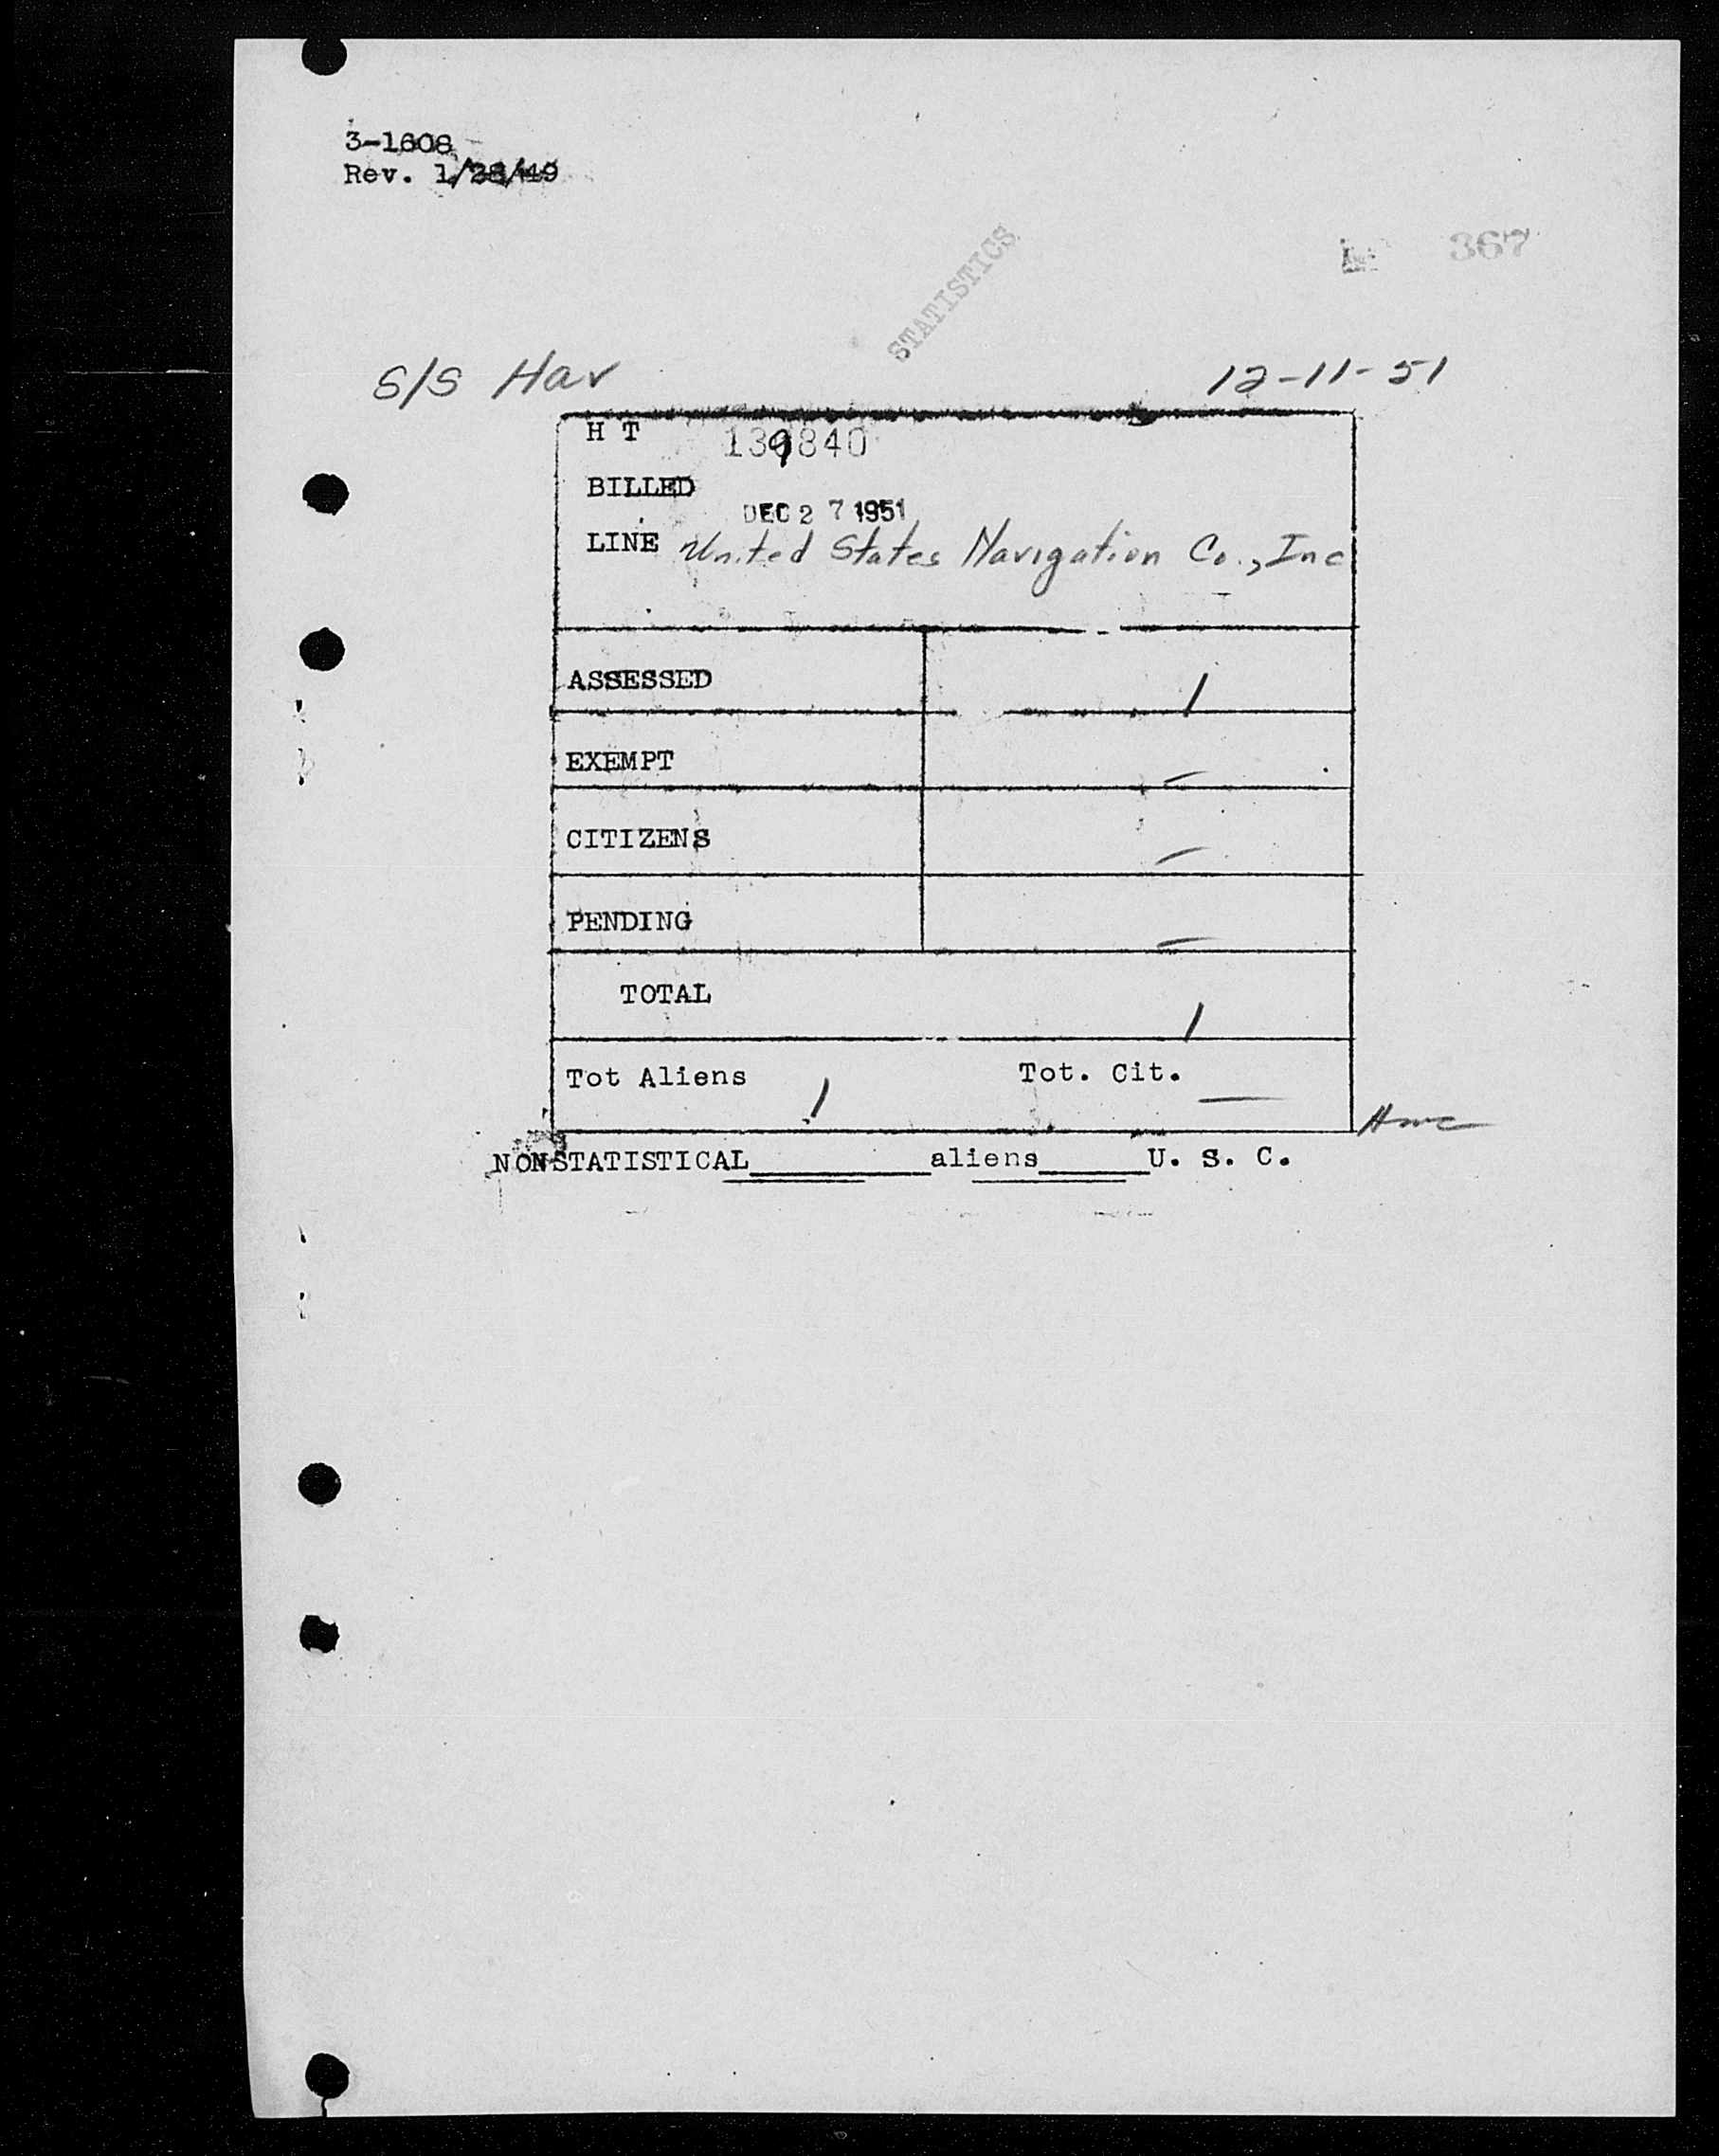 3-1608
Rev. 1/28/49
367
STATISTICS
S/S Hav 12-11-51
H T 139840
BILLED
DEC 27 1951
LINE United States Navigation Co., Inc
ASSESSED 1
EXEMPT —
CITIZENS —
PENDING —
TOTAL 1
Tot Aliens 1 Tot. Cit. —
NONSTATISTICAL__________aliens______U. S. C.